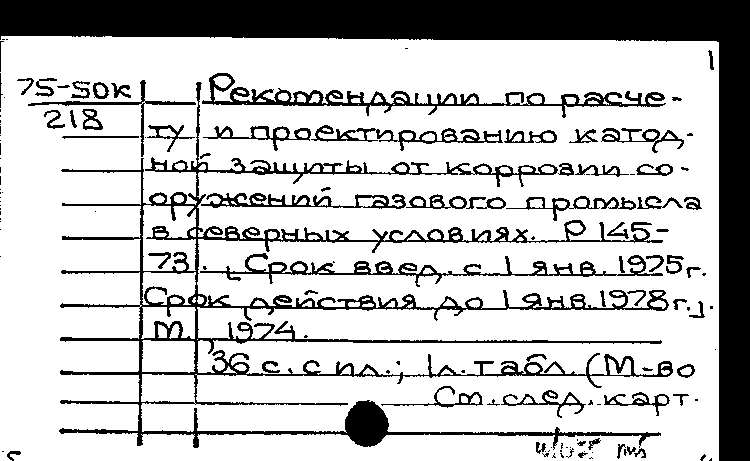 1
75-50к Рекомендации по расче-
218
ту и проектированию катод-
ной защиты от коррозии со-
оружений газового промысла
в северных условиях. Р 145-
73. [Срок введ. с 1 янв. 1925г.
Срок действия до 1 янв. 1978г.].
М., 1974.
36 с. с ил.; 1л. табл. (М-во
См. след. карт.